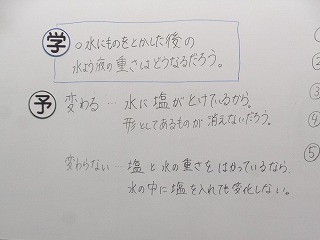 学 ○水にものをとかした後の
水よう液の重さはどうなるだろう。
予 変わる … 水に塩がとけているから。
形としてあるものが消えないだろう。
変わらない … 塩と水の重さをはかっているなら、
水の中に塩を入れても変化しない。
①
②
③
④
⑤